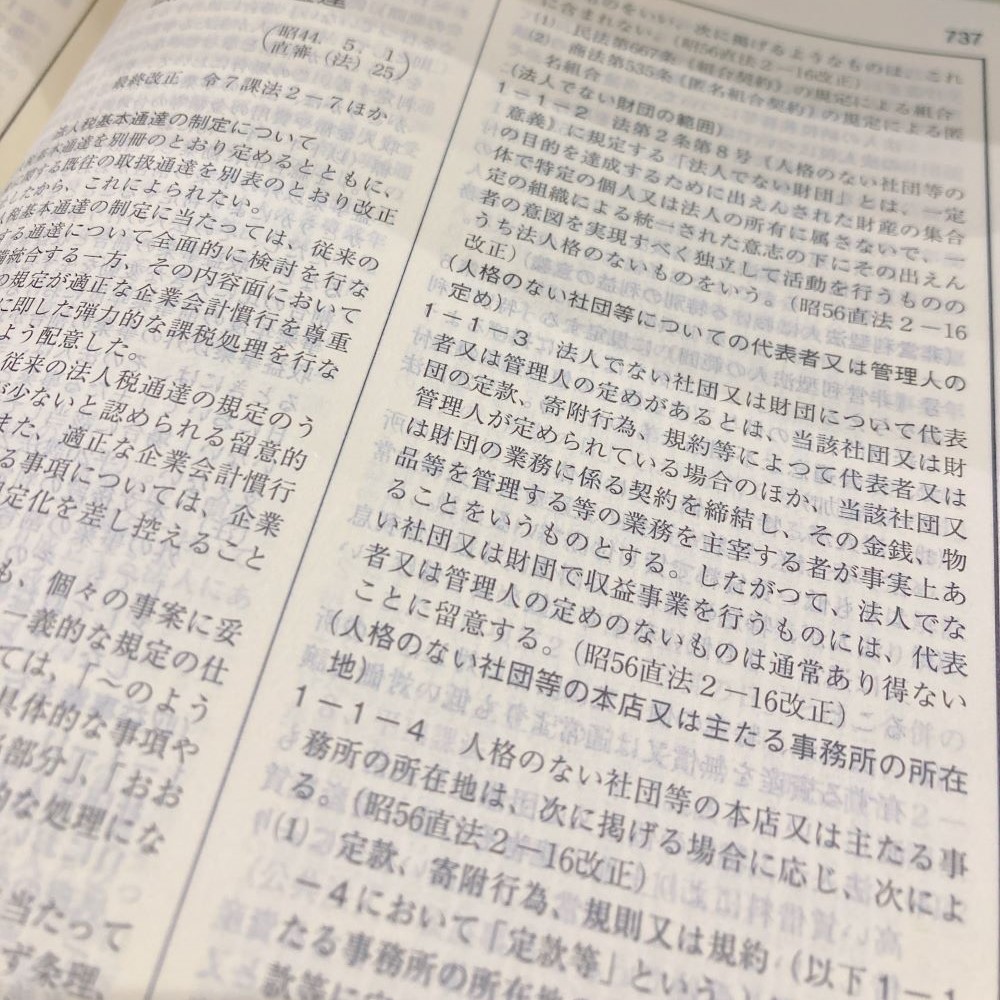 737
(昭44．5．1
直審（法）25)
最終改正　令７課法２－７ほか
法人税基本通達の制定について
基本通達を別冊のとおり定めるとともに、
する既往の取扱通達を別表のとおり改正
したから、これによられたい。
人税基本通達の制定に当たっては、従来の
する通達について全面的に検討を行な
備統合する一方、その内容面において
の規定が適正な企業会計慣行を尊重
に即した弾力的な課税処理を行な
よう配意した。
従来の法人税通達の規定のう
が少ないと認められる留意的
また、適正な企業会計慣行
る事項については、企業
規定化を差し控えること
も、個々の事案に妥
一義的な規定の仕
ては、「～のよう
具体的な事項や
部分」、「おお
的な処理にな
当たって
ず条理、
のをいい、次に掲げるようなものは、これ
に含まれない。（昭56直法２－16改正）
(1)　民法第667条《組合契約》の規定による組合
(2)　商法第535条《匿名組合契約》の規定による匿
名組合
（法人でない財団の範囲）
１－１－２　法第２条第８号《人格のない社団等の
意義》に規定する「法人でない財団」とは、一定
の目的を達成するために出えんされた財産の集合
体で特定の個人又は法人の所有に属さないで、一
定の組織による統一された意志の下にその出えん
者の意図を実現すべく独立して活動を行うものの
うち法人格のないものをいう。（昭56直法２－16
改正）
（人格のない社団等についての代表者又は管理人の
定め）
１－１－３　法人でない社団又は財団について代表
者又は管理人の定めがあるとは、当該社団又は財
団の定款、寄附行為、規約等によつて代表者又は
管理人が定められている場合のほか、当該社団又
は財団の業務に係る契約を締結し、その金銭、物
品等を管理する等の業務を主宰する者が事実上あ
ることをいうものとする。したがつて、法人でな
い社団又は財団で収益事業を行うものには、代表
者又は管理人の定めのないものは通常あり得ない
ことに留意する。（昭56直法２－16改正）
（人格のない社団等の本店又は主たる事務所の所在
地）
１－１－４　人格のない社団等の本店又は主たる事
務所の所在地は、次に掲げる場合に応じ、次によ
る。（昭56直法２－16改正）
(1)　定款、寄附行為、規則又は規約（以下１－１
－４において「定款等」という。）
たる事務所の所在
款等に